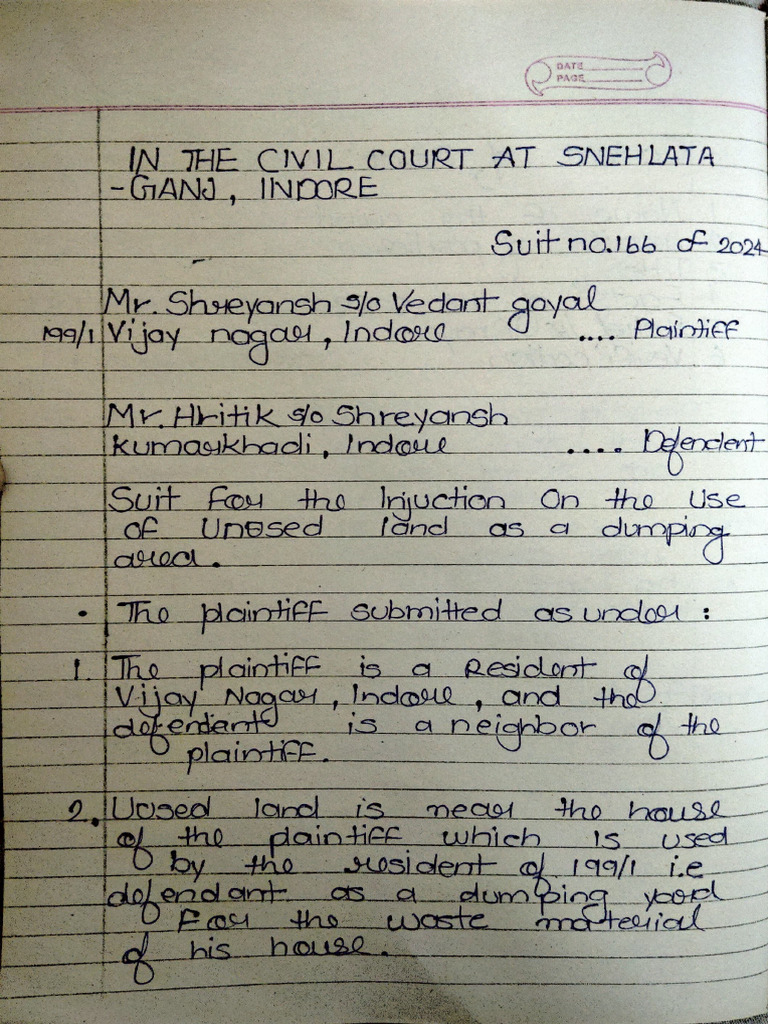 DATE
PAGE
IN THE CIVIL COURT AT SNEHLATA
-GANJ, INDORE
Suit no.166 of 2024
Mr. Shreyansh s/o Vedant goyal
199/1 Vijay nagar, Indore .... Plaintiff
Mr. Hritik s/o Shreyansh
Kumarkhadi, Indore .... Defendent
Suit For the Injuction On the Use
of Unosed land as a dumping
area.
• The plaintiff submitted as under :
1. The plaintiff is a Resident of
Vijay Nagar, Indore, and the
defendant is a neighbor of the
plaintiff.
2. Uosed land is near the house
of the plaintiff which is used
by the resident of 199/1 i.e
defendant as a dumping yard
For the waste material
of his house.